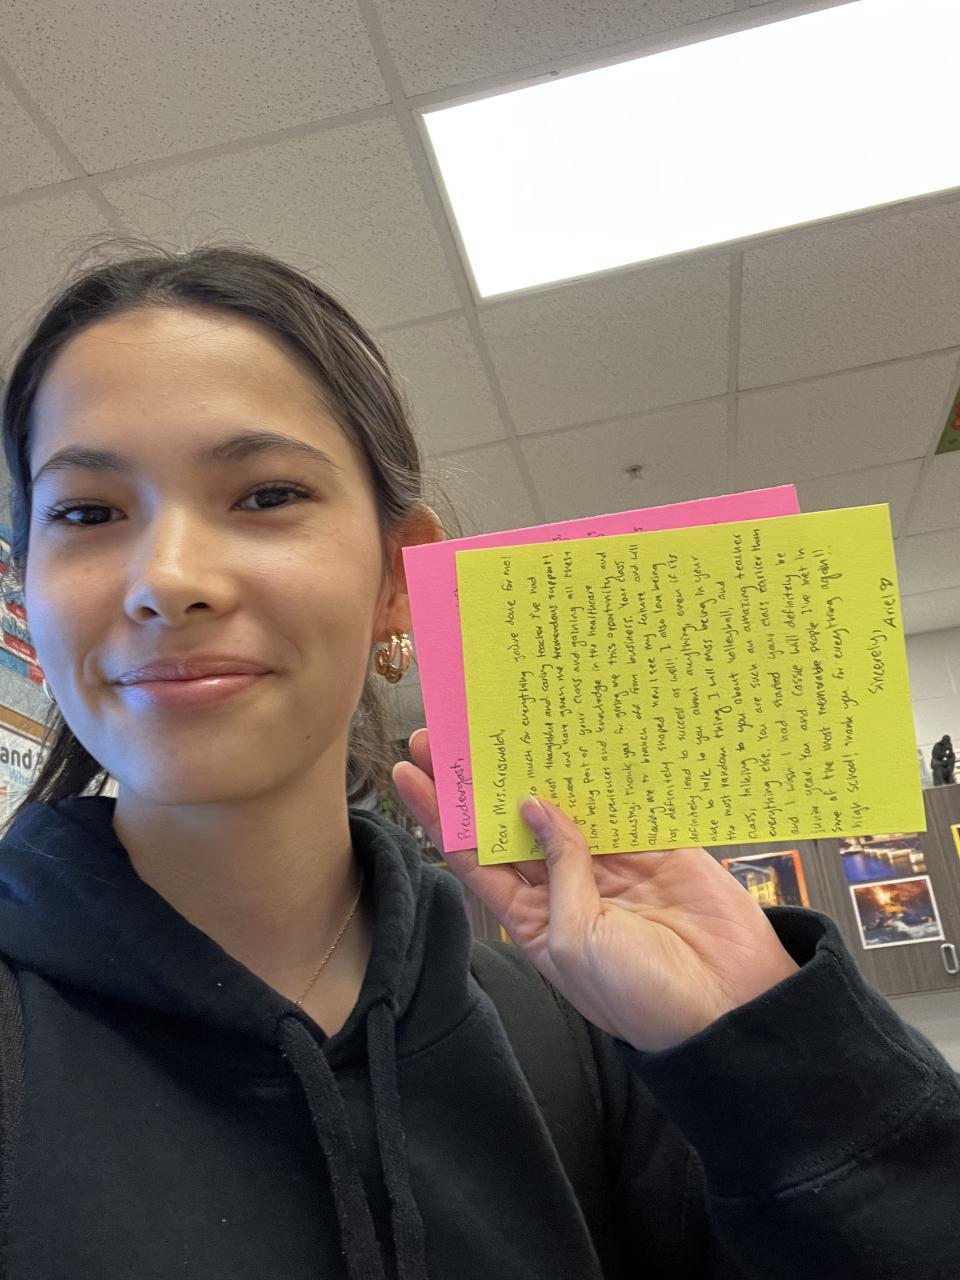 Prendergast,
Dear Mrs. Griswold,
so much for everything you've done for me!
most thoughtful and caring teacher I've had
school and have given me tremendous support!
I love being part of your class and gaining all these
new experiences and knowledge in the healthcare
industry! Thank you for giving me this opportunity and
allowing me to branch off from business. Your class
has definitely shaped how I see my future and will
definitely lead to success as well! I also love being
able to talk to you about anything, even if its
the most random thing. I will miss being in your
class, talking to you about volleyball, and
everything else. You are such an amazing teacher
and I wish I had started your class earlier than
junior year. You and Cassie will definitely be
some of the most memorable people I've met in
high school! Thank you for everything again!!
Sincerely,
Ariel ♡
and